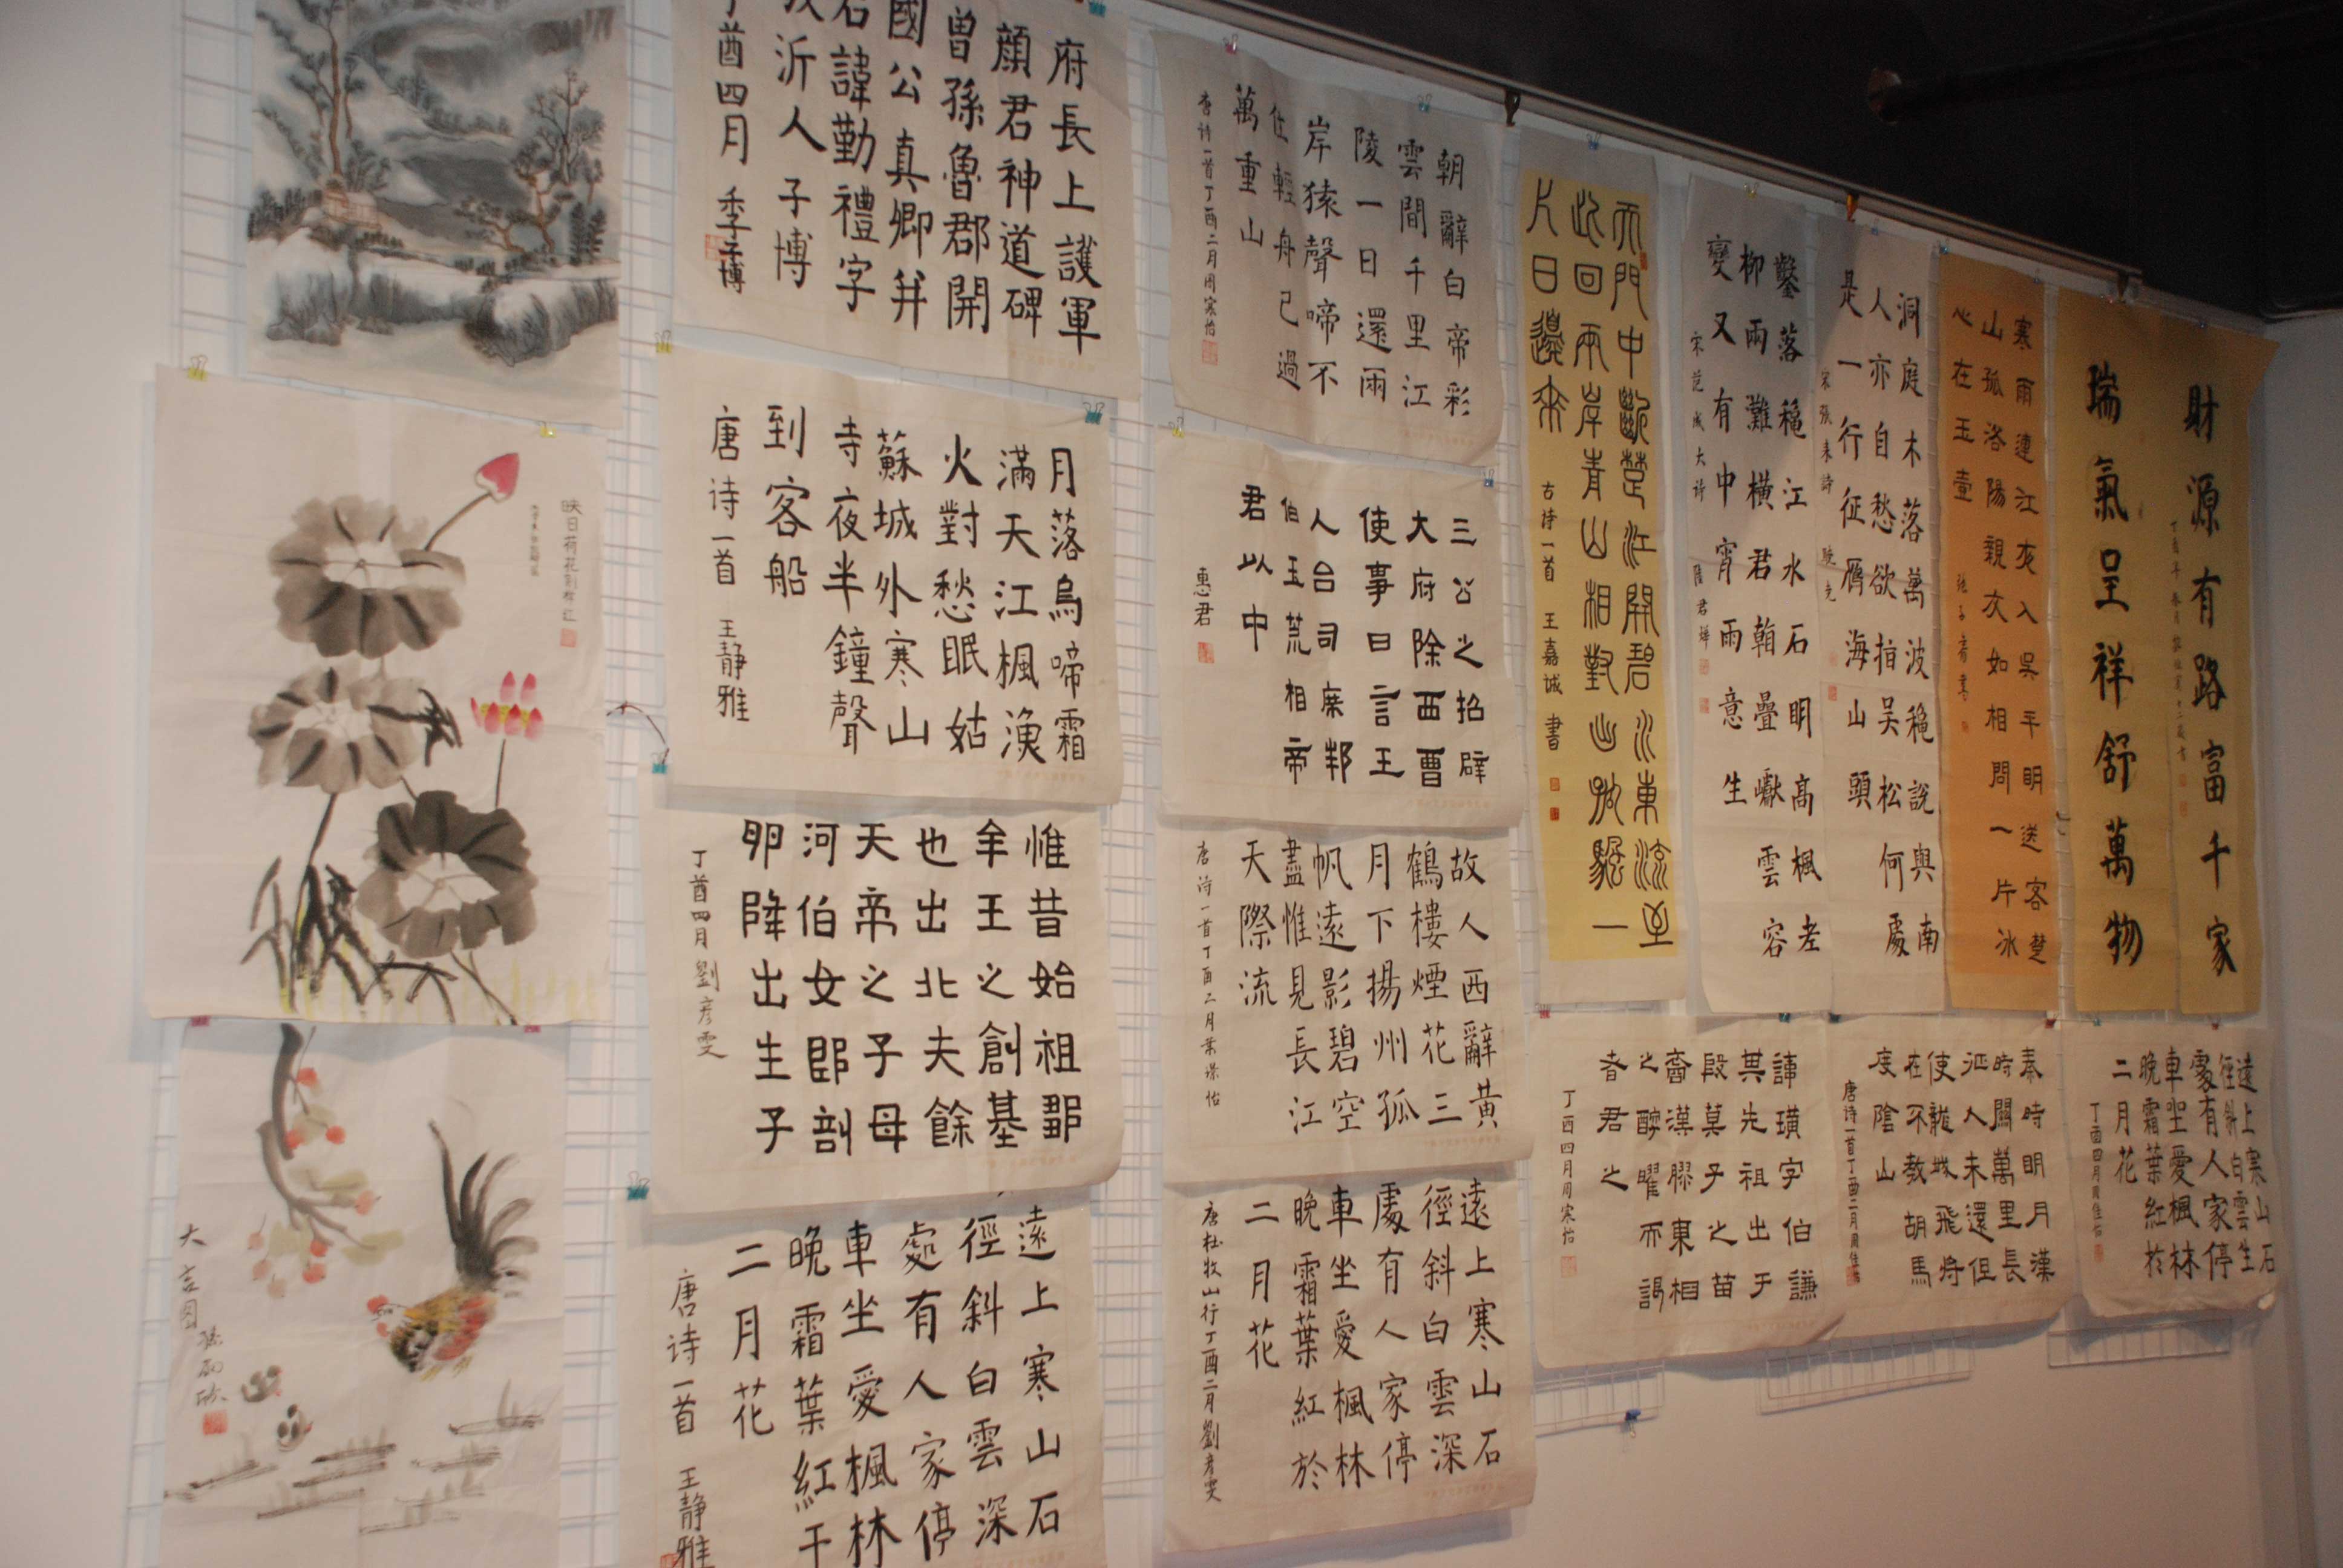 映日荷花別樣紅
大吉图
府長上護軍
顏君神道碑
曾孫魯郡開
國公真卿并
諱勤禮字
沂人子博
酉四月 季子博
月落烏啼霜
滿天江楓漁
火對愁眠姑
蘇城外寒山
寺夜半鐘聲
到客船
唐诗一首 王静雅
惟昔始祖鄒
牟王之創基
也出北夫餘
天帝之子母
河伯女郎剖
卵降出生子
丁酉四月劉彦雯
遠上寒山石
徑斜白雲深
處有人家停
車坐愛楓林
晚霜葉紅于
二月花
唐诗一首 王静雅
朝辭白帝彩
雲間千里江
陵一日還兩
岸猿聲啼不
住輕舟已過
萬重山
唐诗一首丁酉二月周寀怡
三公之招辟
大府除西曹
使事曰言王
人台司庶邦
伯玉荒相帝
君以中
惠君
故人西辭黃
鶴樓煙花三
月下揚州孤
帆遠影碧空
盡惟見長江
天際流
唐诗一首丁酉二月
遠上寒山石
徑斜白雲深
處有人家停
車坐愛楓林
晚霜葉紅於
二月花
唐杜牧山行丁酉二月劉彦雯
天門中斷楚江開碧水東流至
此回兩岸青山相對出孤帆一
片日邊來
古诗一首 王嘉诚 書
鑿落穐江水石明高楓老
柳兩灘橫君疊巘雲容
變又有中宵雨意生
宋范成大詩
洞庭木落萬波穐說與南
人亦自愁欲指吴松何處
是一行征雁海山頭
宋張耒詩
寒雨連江夜入吳平明送客楚
山孤洛陽親友如相問一片冰
心在玉壺
財源有路富千家
瑞氣呈祥舒萬物
諱璜字伯謙
其先祖出于
段莫子之苗
裔漢膠東相
之醇曜而謁
者君之
丁酉四月周寀怡
秦時明月漢
時關萬里長
征人未還但
使龍城飛将
在不教胡馬
度陰山
唐诗一首丁酉二月周佳怡
遠上寒山石
徑斜白雲生
處有人家停
車坐愛楓林
晚霜葉紅於
二月花
丁酉四月周佳怡